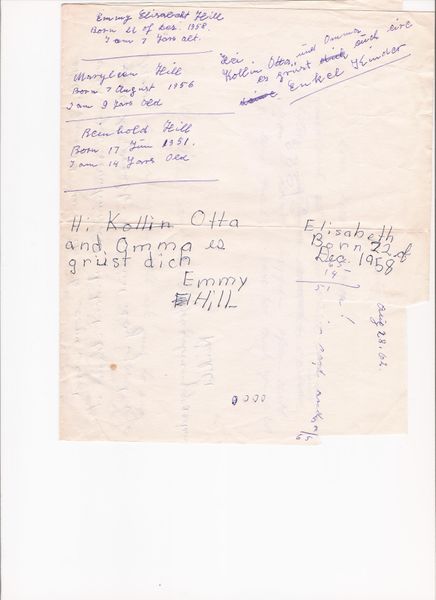 Emmy Elisabeth Hill
Born 22 of Des. 1958.
I am 7 Jars alt.
Hei.
Kollin Otta, und Omma
es grüst euch eire
Enkel Kinder
Marylion Hill
Born 7 August 1956
I am 9 Jars Old
Reinhold Hill
Born 17 Jun 1951.
I am 14 Jars Old
Hi Kollin Otta
and Omma es
grüst dich
Emmy
Hill
Elisabeth
Born 22 of
Dec. 1958
65
14
51
Aug 28. 62.